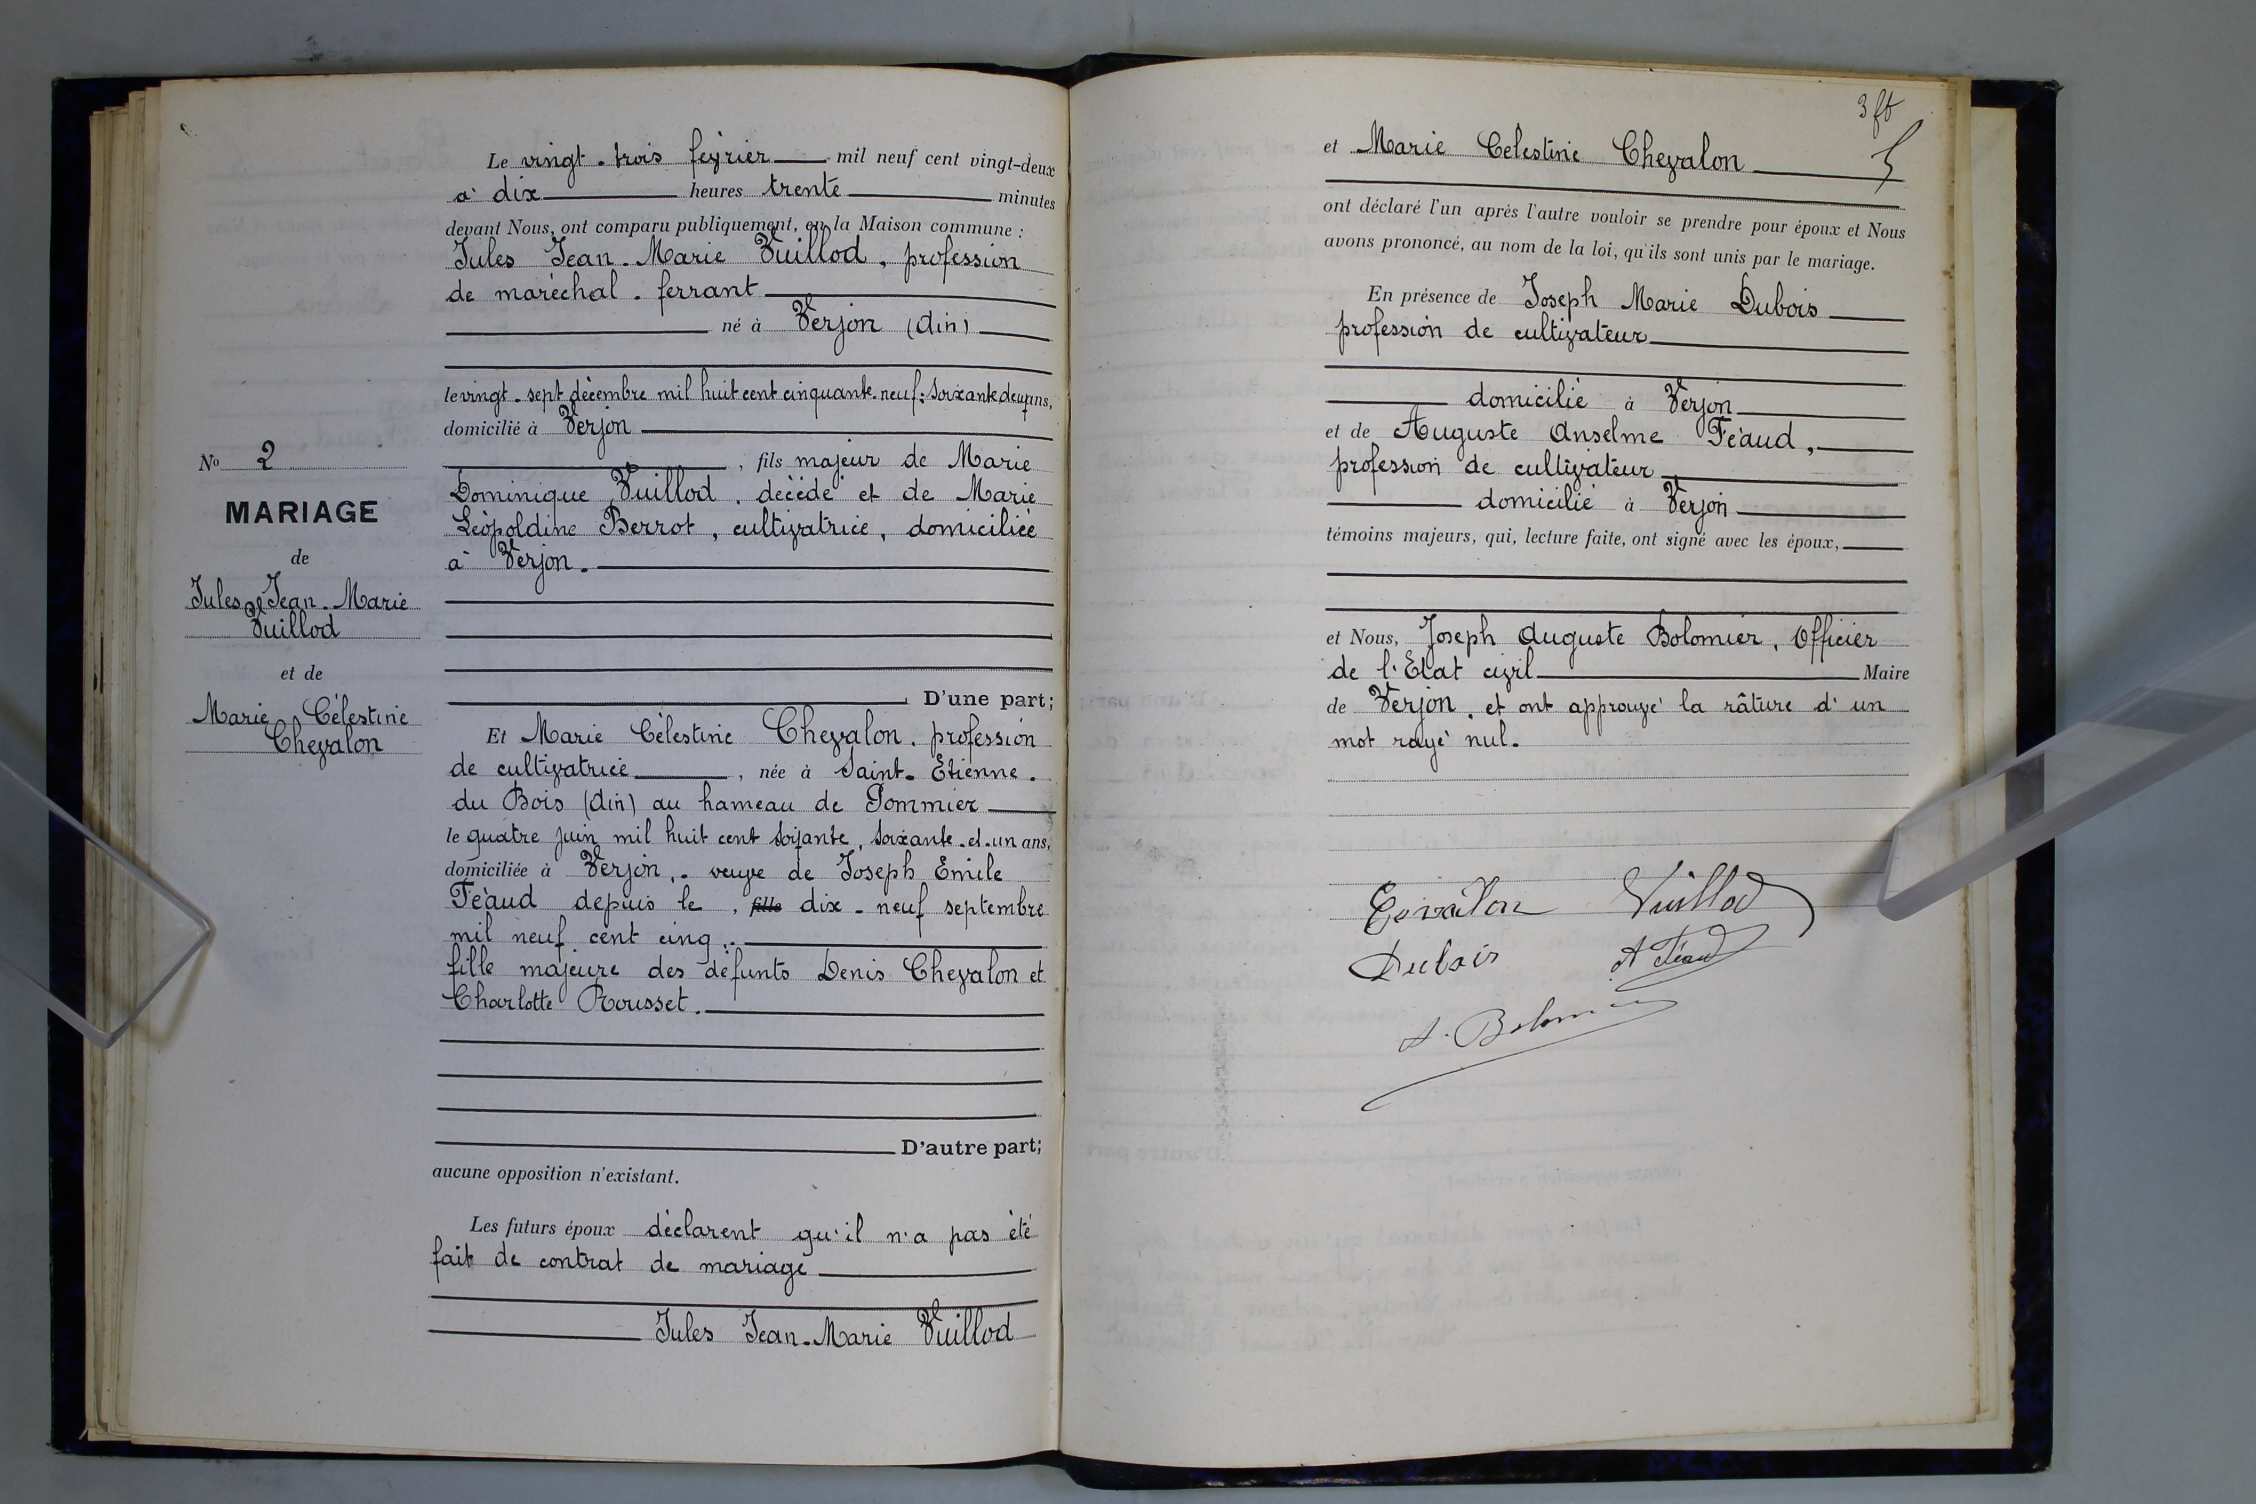 Le vingt-trois février mil neuf cent vingt-deux
à dix heures trente minutes
devant Nous, ont comparu publiquement, en la Maison commune :
Jules Jean-Marie Vuillod, profession
de maréchal-ferrant
né à Verjon (Ain)
le vingt-sept décembre mil huit cent cinquante-neuf; soixante deux ans,
domicilié à Verjon
, fils majeur de Marie
Dominique Vuillod, décédé et de Marie
Léopoldine Berrot, cultivatrice, domiciliée
à Verjon.
D'une part;
Et Marie Célestine Chevalon, profession
de cultivatrice, née à Saint-Etienne-
du Bois (Ain) au hameau de Pommier
le quatre juin mil huit cent soixante, soixante-et-un ans,
domiciliée à Verjon, veuve de Joseph Emile
Féaud depuis le, fille dix-neuf septembre
mil neuf cent cinq,
fille majeure des défunts Denis Chevalon et
Charlotte Rousset.
D'autre part;
aucune opposition n'existant.
Les futurs époux déclarent qu'il n'a pas été
fait de contrat de mariage
Jules Jean-Marie Vuillod
No 2
MARIAGE
de
Jules Jean-Marie
Vuillod
et de
Marie Célestine
Chevalon
3
et Marie Celestine Chevalon
ont déclaré l'un après l'autre vouloir se prendre pour époux et Nous
avons prononcé, au nom de la loi, qu'ils sont unis par le mariage.
En présence de Joseph Marie Dubois
profession de cultivateur
domicilié à Verjon
et de Auguste Anselme Féaud,
profession de cultivateur
domicilié à Verjon
témoins majeurs, qui, lecture faite, ont signé avec les époux,
et Nous, Joseph Auguste Bolomier, Officier
de l'Etat civil Maire
de Verjon, et ont approuvé la râture d'un
mot rayé nul.
Vuillod
Dubois
A Féaud